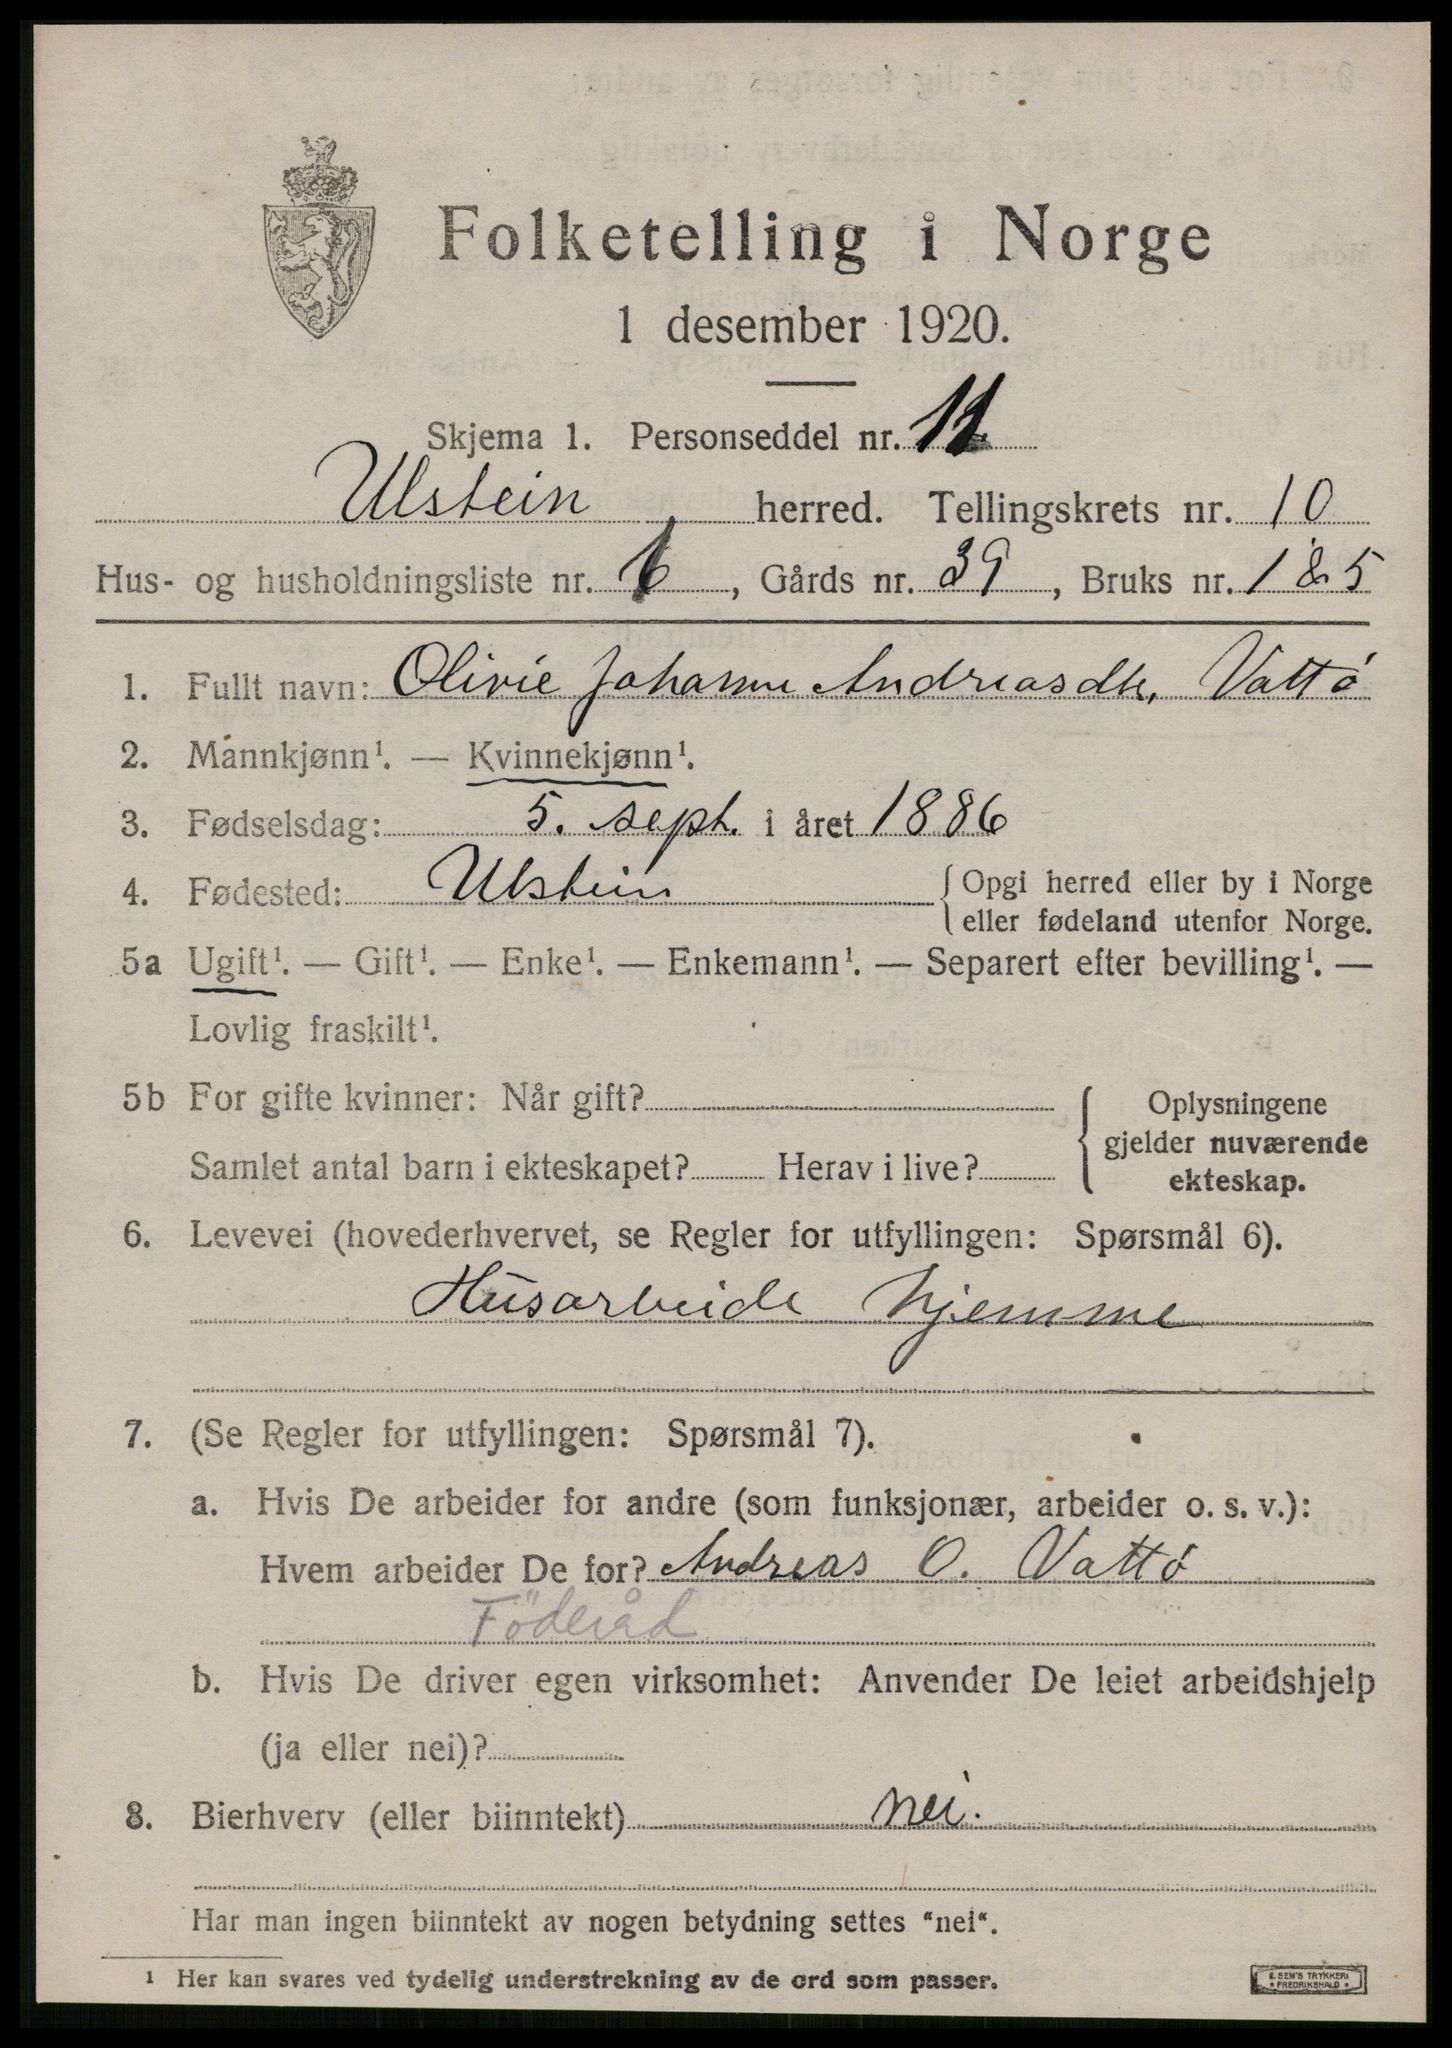 Folketelling i Norge
1 desember 1920.
Skjema 1. Personseddel nr. 11
Ulstein herred. Tellingskrets nr. 10
Hus- og husholdningsliste nr. 6, Gårds nr. 39, Bruks nr. 1 & 5
1. Fullt navn: Olivie Johanne Andreasdtr, Vattø
2. Mannkjønn¹. — Kvinnekjønn¹.
3. Fødselsdag: 5. sept. i året 1886
4. Fødested: Ulstein { Opgi herred eller by i Norge
eller fødeland utenfor Norge.
5a Ugift¹. — Gift¹. — Enke¹. — Enkemann¹. — Separert efter bevilling¹. —
Lovlig fraskilt¹.
5b For gifte kvinner: Når gift?
Samlet antal barn i ekteskapet? Herav i live?
{ Oplysningene
gjelder nuværende
ekteskap.
6. Levevei (hovederhvervet, se Regler for utfyllingen: Spørsmål 6).
Husarbeide hjemme
7. (Se Regler for utfyllingen: Spørsmål 7).
a. Hvis De arbeider for andre (som funksjonær, arbeider o. s. v.):
Hvem arbeider De for? Andreas O. Vattø
Föderåd
b. Hvis De driver egen virksomhet: Anvender De leiet arbeidshjelp
(ja eller nei)?
8. Bierhverv (eller biinntekt) nei.
Har man ingen biinntekt av nogen betydning settes "nei".
¹ Her kan svares ved tydelig understrekning av de ord som passer.
E. SEM'S TRYKKERI
• FREDRIKSHALD •